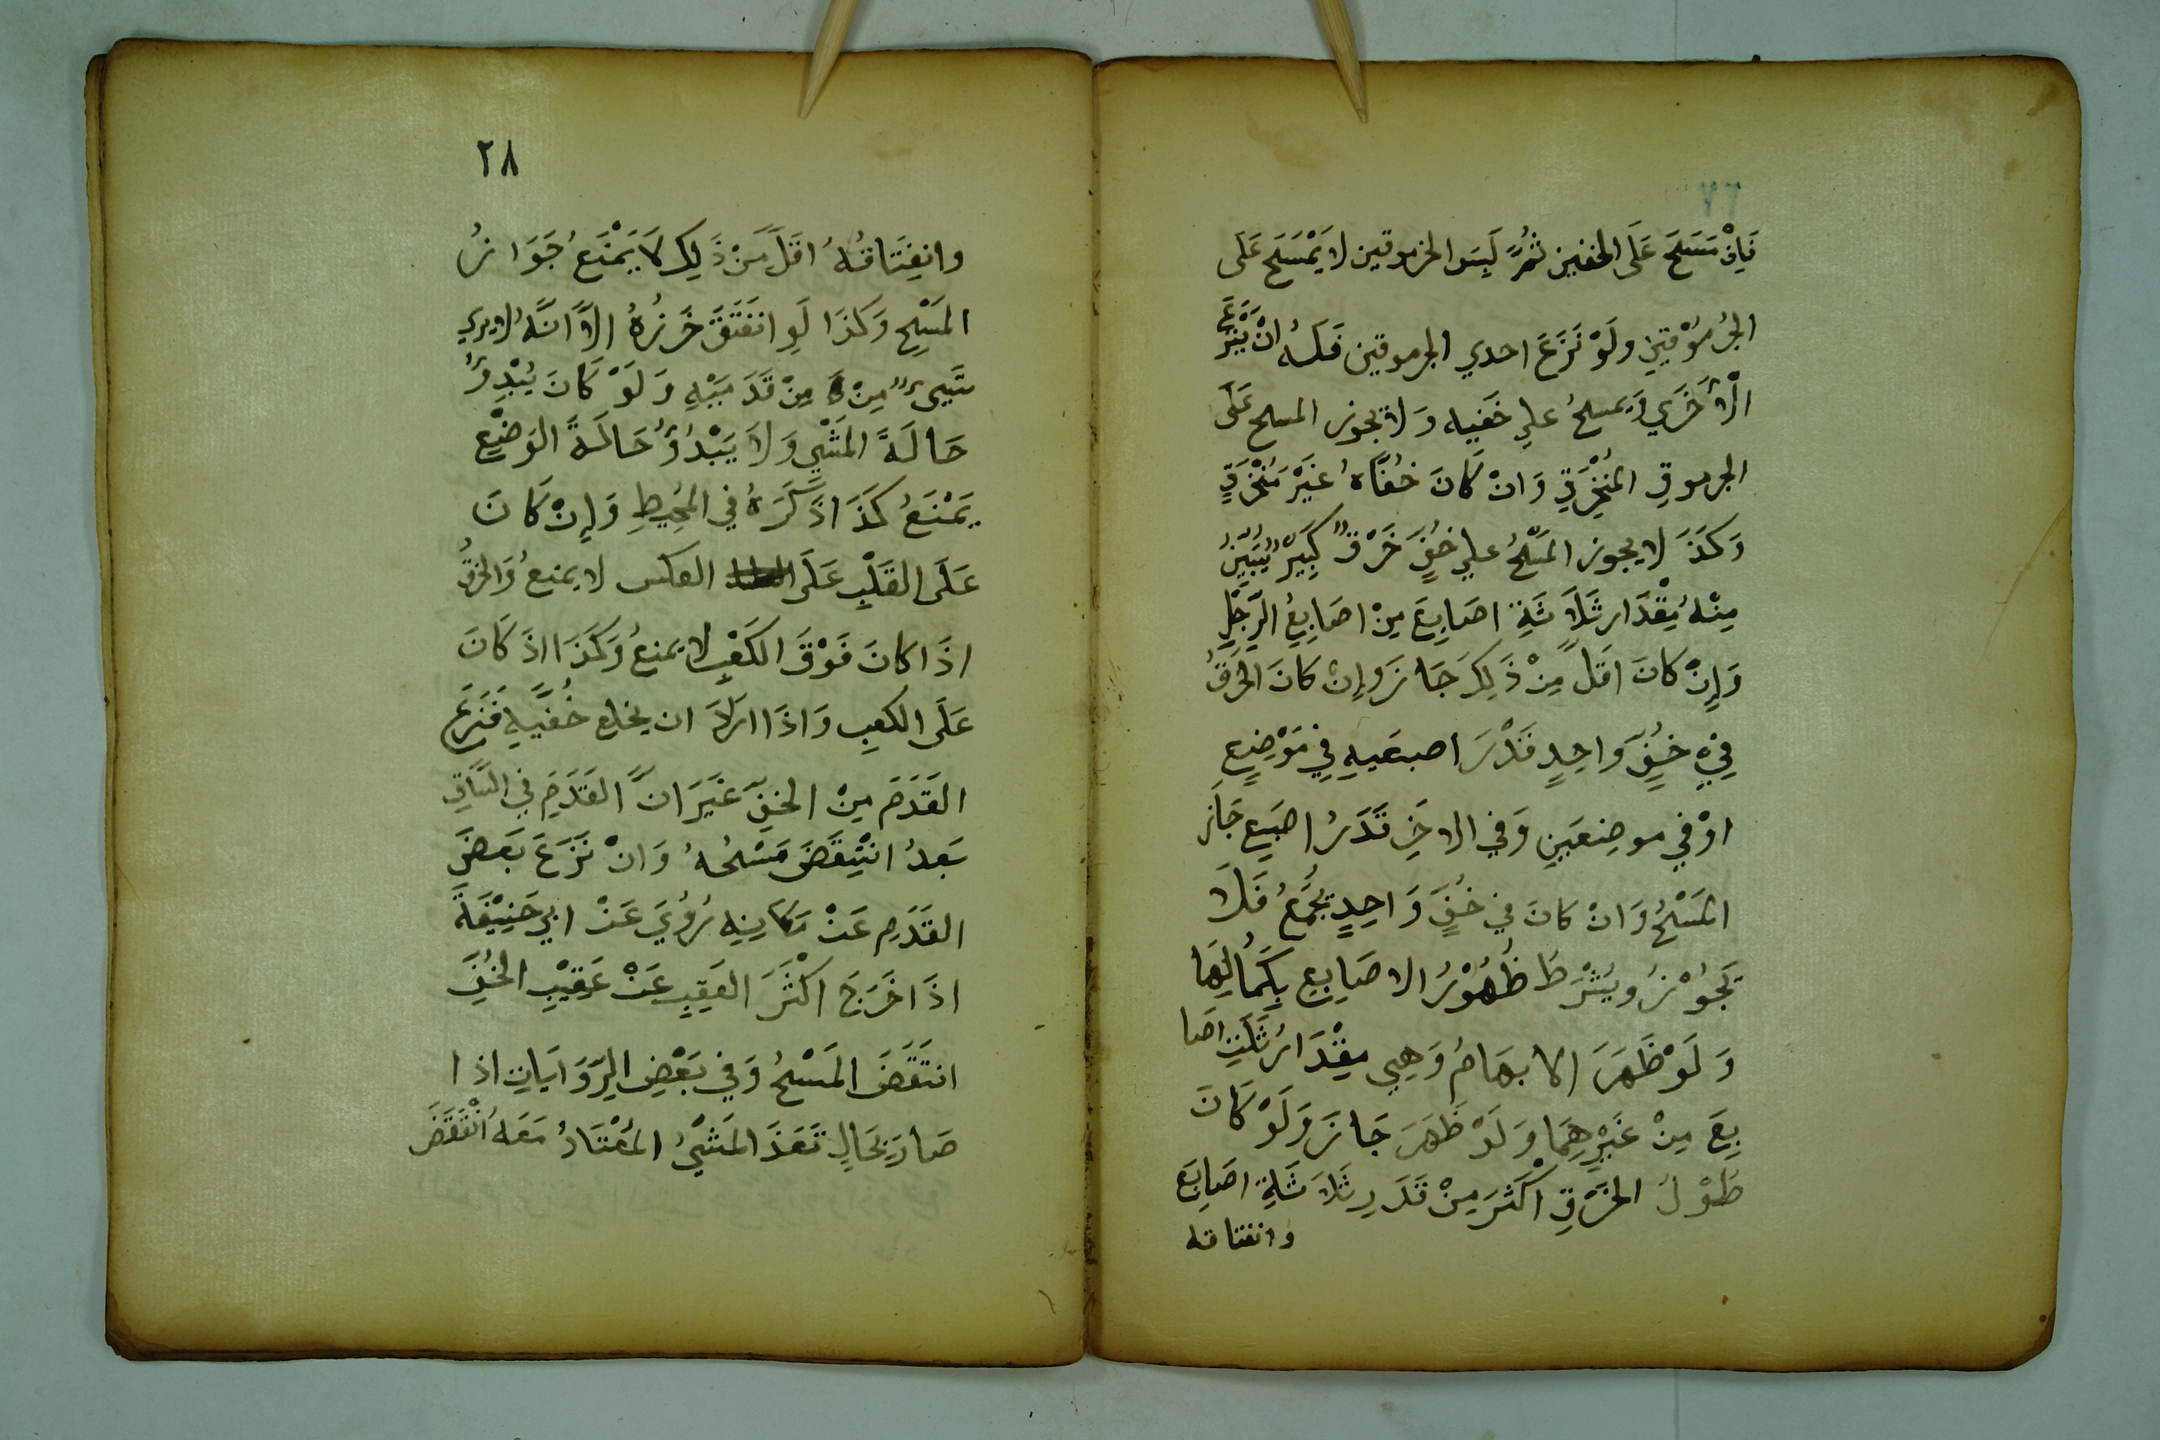 فَاِنْ مَسَحَ عَلَى الخفين ثُمَّ لَبِسَ الجرموقين لاَ يَمْسَح عَلَى
الجُرْمُوْقَيْنِ ولَوْ نَزَعَ احدي الجرموقين فَلَهُ اَنْ يَنْزَعَ
الْاُخْرَي وَيمسحُ علي خفيه وَ لا يجوز المسح عَلَى
الجرموقِ المُنْخَرِقِ وَانْ كَانَ خُفَّاهُ غَيْرَ مُنْخَرِقٍ
وَكَذَ لا يجوز المَسْحُ علي خُفٍّ خَرْقٌ كَبِيْرٌ يُبَيِّنُ
مِنْهُ مِقْدَار ثَلاَثَةِ اصَابِعَ مِنْ اصَابِعُ الرِّجْلِ
وَاِنْ كانَ اَقَلَّ مِنْ ذَلِكَ جَازَ وَاِنْ كانَ الخَرقُ
فِيْ خُفٍّ وَاحِدٍ قَدْرَ اصبعيهِ فِي مَوْضِعٍ
اوْ فِي موضِعَينِ وَفي الاخَرِ قَدَرُ اصبَعٍ جَازَ
المَسْحُ وَانْ كانَ في خُفٍّ وَاحِدٍ يُجْمَعُ فَلَا
يَجُوْزُ ويُشْرَطُ ظُهُوْرُ الاصَابِعِ بِكَمَالِهَا
وَ لَوْ ظَهَرَ الابهَامُ وَهِيَ مِقْدَارُ ثَلَثِ اصَا
بِعَ مِنْ غَيْرِهِمَا وَ لَوْ ظَهَرَ جَازَ وَلَوْ كَانَ
طَوْلُ الخَرْقِ اكْثَرَ مِنْ قَدَرِ ثَلاَثَةِ اصَابِعَ
وانفتاقه
٢٨
وانفِتَاقُهُ اقَلَّ مِنْ ذَلِكَ لاَ يَمْنَعُ جَوَازُ
المَسْحِ وَكَذَا لَوِ انفَتَقَ خَرزُهُ الاَّ انَّهُ لا يري
شَيىءٌ مِنْ مِنْ قَدَمَيْهِ وَ لَوْ كَانَ يُبْدِؤُ
حَالَةَ المَشْيِ وَ لاَ يَبْدُؤُ حَالَةَ الوَضْعِ
يَمْنَعُ كَذَا ذَكَرَهُ في المُحِيْطِ وَاِنْ كَانَ
عَلَى القَلْبِ عَلَى العكس لا يمنعُ وَالخرقُ
اذَا كانَ فَوْقَ الكَعْبِ لا يمنعُ وَكَذَا اذَ كَانَ
عَلَى الكعبِ وَاذَا ارَادَ ان يخلع خُفَّيهِ فَنَزَعَ
القَدَمَ مِنْ الخفِّ غَيَرَ انَّ القَدَمَ في السَّاقِ
بَعدُ انْتِقَضَ مَسْحُهُ وَانْ نَزَعَ بَعضَ
القَدَمِ عَنْ مَكَانِهِ رُوِيَ عَنْ ابي حَنِيْفَةَ
اذَا خَرَجَ اكْثَرَ العَقِبِ عَنْ عَقِيْبِ الخُفِّ
انتَقَضَ المَسْحُ وَفي بَعْضِ الرِّوَايَاتِ اذا
صَارَ بِحَالٍ تَعَذَ المَشْيُ المُعْتَادُ مَعَهُ اُنْتَقَضَ